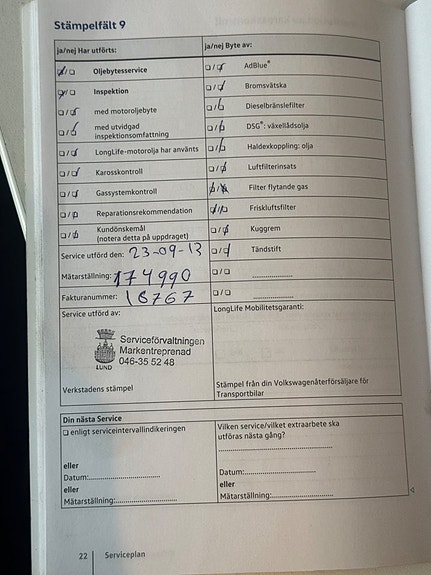 Stämpelfält 9
ja/nej Har utförts:
☑/☐ Oljebytesservice
☑/☐ Inspektion
☐/☑ med motoroljebyte
☐/☑ med utvidgad
inspektionsomfattning
☐/☑ LongLife-motorolja har använts
☐/☑ Karosskontroll
☐/☑ Gassystemkontroll
☐/☑ Reparationsrekommendation
☐/☑ Kundönskemål
(notera detta på uppdraget)
Service utförd den: 23-09-13
Mätarställning: 174990
Fakturanummer: 18767
ja/nej Byte av:
☐/☑ AdBlue®
☐/☑ Bromsvätska
☐/☑ Dieselbränslefilter
☐/☑ DSG®: växellådsolja
☐/☑ Haldexkoppling: olja
☐/☑ Luftfilterinsats
Filter flytande gas
☑/☐ Friskluftsfilter
☐/☑ Kuggrem
☐/☑ Tändstift
☐/☐
☐/☐
Service utförd av:
LUND
Serviceförvaltningen
Markentreprenad
046-35 52 48
Verkstadens stämpel
LongLife Mobilitetsgaranti:
Stämpel från din Volkswagenåterförsäljare för
Transportbilar
Din nästa Service
☐ enligt serviceintervallindikeringen
eller
Datum:
eller
Mätarställning:
Vilken service/vilket extraarbete ska
utföras nästa gång?
Datum:
eller
Mätarställning:
22 Serviceplan